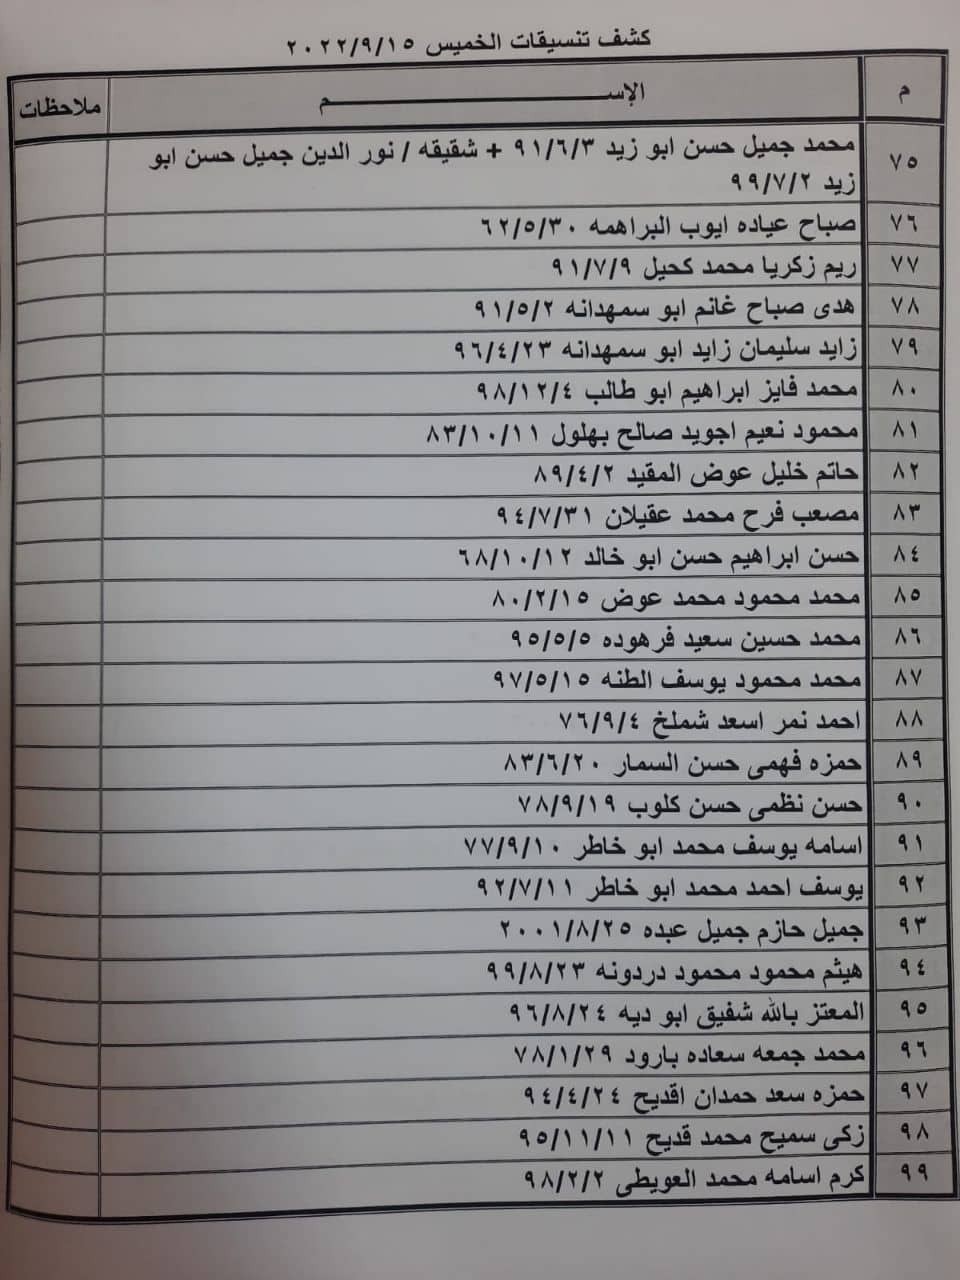 كشف تنسيقات الخميس ٢٠٢٢/٩/١٥
م الإســـــم ملاحظات
٧٥ محمد جميل حسن ابو زيد ٩١/٦/٣ + شقيقه / نور الدين جميل حسن ابو
زيد ٩٩/٧/٢
٧٦ صباح عياده ايوب البراهمه ٦٢/٥/٣٠
٧٧ ريم زكريا محمد كحيل ٩١/٧/٩
٧٨ هدى صباح غانم ابو سمهدانه ٩١/٥/٢
٧٩ زايد سليمان زايد ابو سمهدانه ٩٦/٤/٢٣
٨٠ محمد فايز ابراهيم ابو طالب ٩٨/١٢/٤
٨١ محمود نعيم اجويد صالح بهلول ٨٣/١٠/١١
٨٢ حاتم خليل عوض المقيد ٨٩/٤/٢
٨٣ مصعب فرح محمد عقيلان ٩٤/٧/٣١
٨٤ حسن ابراهيم حسن ابو خالد ٦٨/١٠/١٢
٨٥ محمد محمود محمد عوض ٨٠/٢/١٥
٨٦ محمد حسين سعيد فرهوده ٩٥/٥/٥
٨٧ محمد محمود يوسف الطنه ٩٧/٥/١٥
٨٨ احمد نمر اسعد شملخ ٧٦/٩/٤
٨٩ حمزه فهمى حسن السمار ٨٣/٦/٢٠
٩٠ حسن نظمى حسن كلوب ٧٨/٩/١٩
٩١ اسامه يوسف محمد ابو خاطر ٧٧/٩/١٠
٩٢ يوسف احمد محمد ابو خاطر ٩٢/٧/١١
٩٣ جميل حازم جميل عبده ٢٠٠١/٨/٢٥
٩٤ هيثم محمود محمود دردونه ٩٩/٨/٢٣
٩٥ المعتز بالله شفيق ابو ديه ٩٦/٨/٢٤
٩٦ محمد جمعه سعاده بارود ٧٨/١/٢٩
٩٧ حمزه سعد حمدان اقديح ٩٤/٤/٢٤
٩٨ زكى سميح محمد قديح ٩٥/١١/١١
٩٩ كرم اسامه محمد العويطى ٩٨/٢/٢